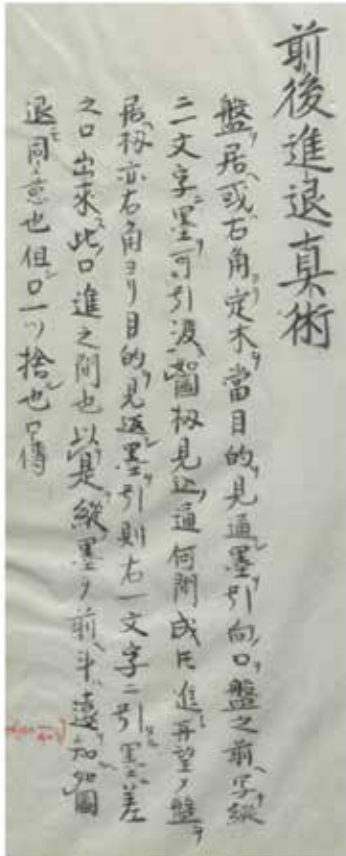 前後進退真術
盤ヲ居ヘ或ハ右角ニ定木ヲ當目的ヲ見通墨ヲ引向口ヲ盤之前ヘ写縦
二文字ニ墨ヲ可引渡如圖扨見込ノ通何間成トモ進ミ再望ノ盤ヲ
居ヘ扨亦右角ヨリ目的ヲ見返墨ヲ引則右一文字ニ引ク墨ニ差
之口出來ス此口進之間也以是ヲ縦墨ヲ前ヘ斗遠ヲ知ル如圖
退同意也但口一ツ捨也口傳